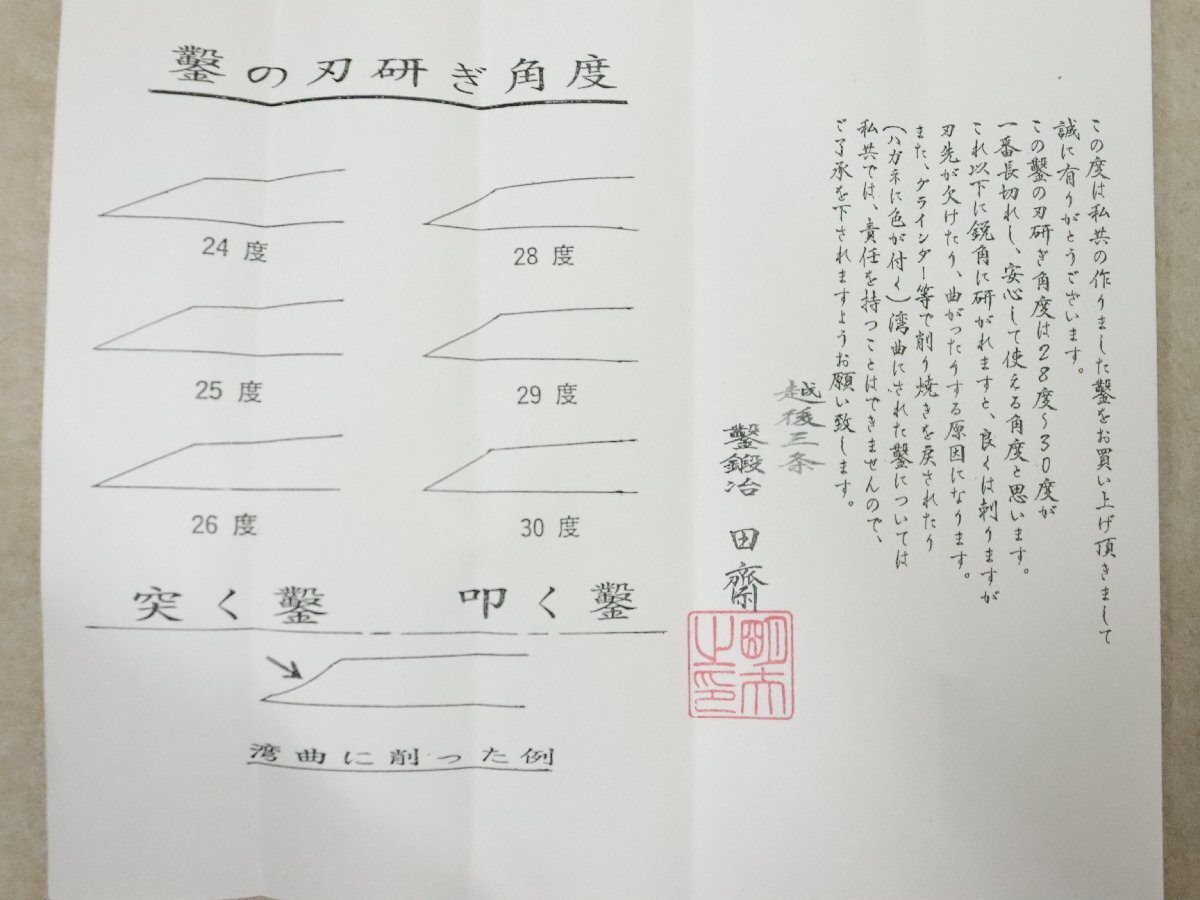 鑿の刃研ぎ角度
24 度
28 度
25 度
29 度
26 度
30 度
突く鑿
叩く鑿
湾曲に削った例
この度は私共の作りました鑿をお買い上げ頂きまして
誠に有りがとうございます。
この鑿の刃研ぎ角度は28度～30度が
一番長切れし、安心して使える角度と思います。
これ以下に鋭角に研がれますと、良くは刺りますが
刃先が欠けたり、曲がったりする原因になります。
また、グラインダー等で削り焼きを戻されたり
(ハガネに色が付く)湾曲にされた鑿については
私共では、責任を持つことはできませんので、
ご了承を下されますようお願い致します。
越後三条
鑿鍛冶 田齋